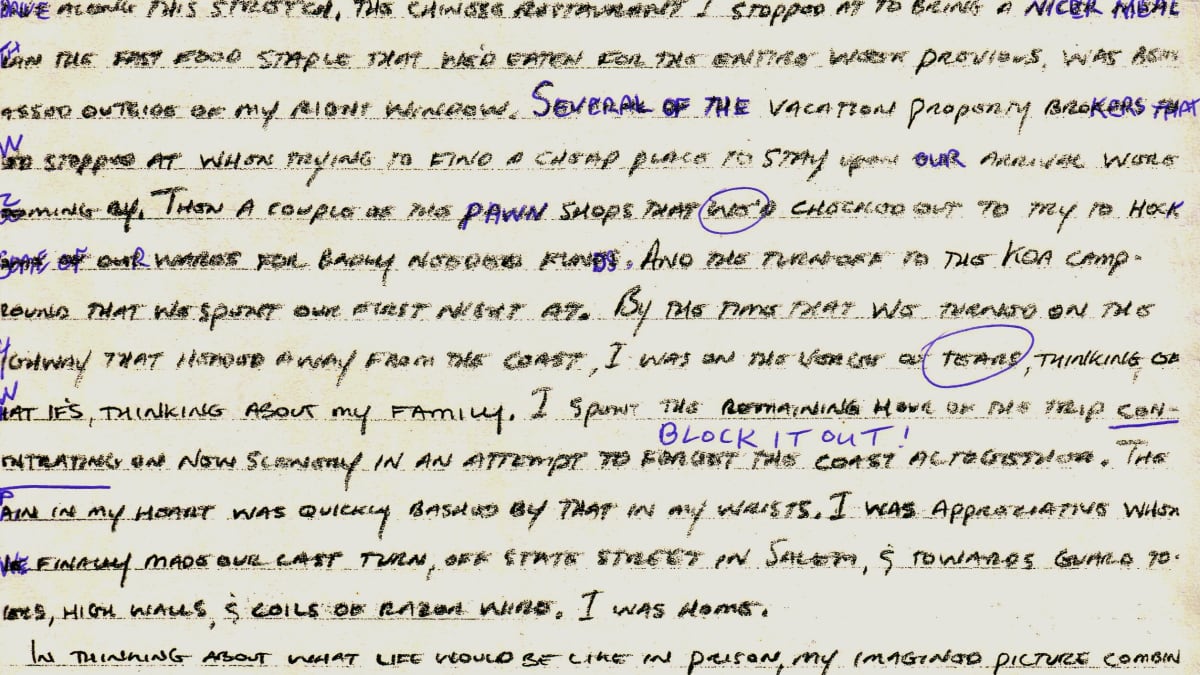 DRIVE ALONG THIS STRETCH. THE CHINESE RESTAURANT I STOPPED AT TO BRING A NICER MEAL
THAN THE FAST FOOD STAPLE THAT WE'D EATEN FOR THE ENTIRE WEEK PREVIOUS, WAS
PASSED OUTSIDE OF MY RIGHT WINDOW. SEVERAL OF THE VACATION PROPERTY BROKERS THAT
STOPPED AT WHEN TRYING TO FIND A CHEAP PLACE TO STAY UPON OUR ARRIVAL WERE
ZOOMING BY. THEN A COUPLE OF THE PAWN SHOPS THAT WE'D CHECKED OUT TO TRY TO HOCK
SOME OF OUR WARES FOR BADLY NEEDED FUNDS. AND THE TURNOFF TO THE KOA CAMP-
ROUND THAT WE SPENT OUR FIRST NIGHT AT. BY THE TIME THAT WE TURNED ON THE
HIGHWAY THAT HEADED AWAY FROM THE COAST, I WAS ON THE VERGE OF TEARS, THINKING OF
WHAT IF'S, THINKING ABOUT MY FAMILY. I SPENT THE REMAINING HOUR OF THE TRIP CON-
BLOCK IT OUT!
ENTRATING ON NEW SCENERY IN AN ATTEMPT TO FORGET THE COAST ALTOGETHER. THE
PAIN IN MY HEART WAS QUICKLY BASHED BY THAT IN MY WRISTS. I WAS APPRECIATIVE WHEN
WE FINALLY MADE OUR LAST TURN, OFF STATE STREET IN SALEM, & TOWARDS GUARD TO-
WERS, HIGH WALLS, & COILS OF RAZOR WIRE. I WAS HOME.
IN THINKING ABOUT WHAT LIFE WOULD BE LIKE IN PRISON, MY IMAGINED PICTURE COMBIN